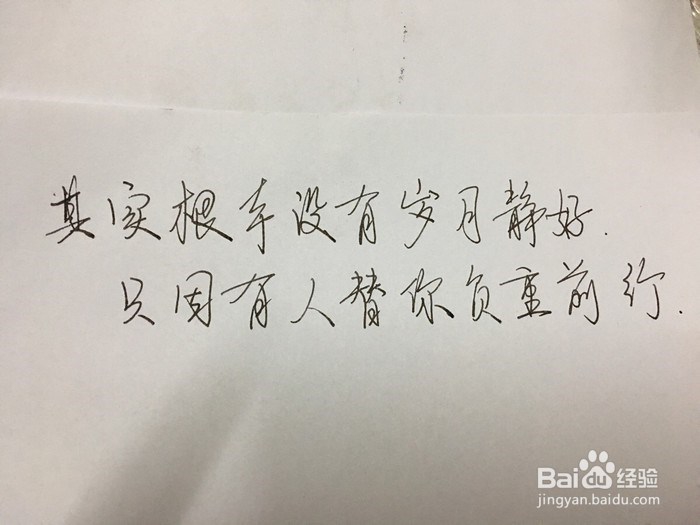 其实根本没有岁月静好.
只因有人替你负重前行.
Baidu经验
jingyan.baidu.com